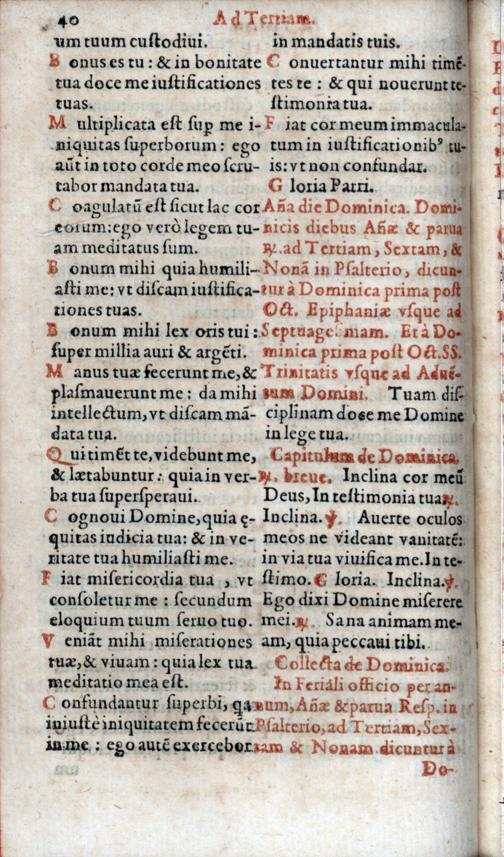 40
Ad Tertiam.
um tuum custodiui.
B onus es tu : & in bonitate
tua doce me iustificationes
tuas.
M ultiplicata est sup me i-
niquitas superborum : ego
aūt in toto corde meo scru-
tabor mandata tua.
C oagulatū est sicut lac cor
eorum:ego verò legem tu-
am meditatus sum.
B onum mihi quia humili-
asti me: vt discam iustifica-
tiones tuas.
B onum mihi lex oris tui :
super millia auri & argēti.
M anus tuæ fecerunt me, &
plasmauerunt me : da mihi
intellectum, vt discam mā-
data tua.
Q ui timēt te, videbunt me,
& lætabuntur : quia in ver-
ba tua supersperaui.
C ognoui Domine, quia ę-
quitas iudicia tua: & in ve-
ritate tua humiliasti me.
F iat misericordia tua , vt
consoletur me : secundum
eloquium tuum seruo tuo.
V eniāt mihi miserationes
tuæ, & viuam : quia lex tua
meditatio mea est.
C onfundantur superbi, qa
iniustè iniquitatem fecerūt
in me : ego autē exercebor
in mandatis tuis.
C onuertantur mihi timē-
tes te : & qui nouerunt te-
stimonia tua.
F iat cor meum immacula-
tum in iustificationibꝰ tu-
is: vt non confundar.
G loria Patri.
Aña die Dominica. Domi-
nicis diebus Añæ & parua
℟. ad Tertiam, Sextam, &
Nonā in Psalterio, dicun-
tur à Dominica prima post
Oct. Epiphaniæ vsque ad
Septuagesimam. Et à Do-
minica prima post Oct. SS.
Trinitatis vsque ad Aduē-
tum Domini. Tuam dis-
ciplinam doce me Domine
in lege tua.
Capitulum de Dominica.
℟. breue. Inclina cor meū
Deus, In testimonia tua ℟.
Inclina. ℣. Auerte oculos
meos ne videant vanitatē:
in via tua viuifica me. In te-
stimo. G loria. Inclina. ℣.
Ego dixi Domine miserere
mei. ℟. Sana animam me-
am, quia peccaui tibi.
Collecta de Dominica.
In Feriali officio per an-
num, Añæ & parua Resp. in
Psalterio, ad Tertiam, Sex-
tam & Nonam dicuntur à
Do-